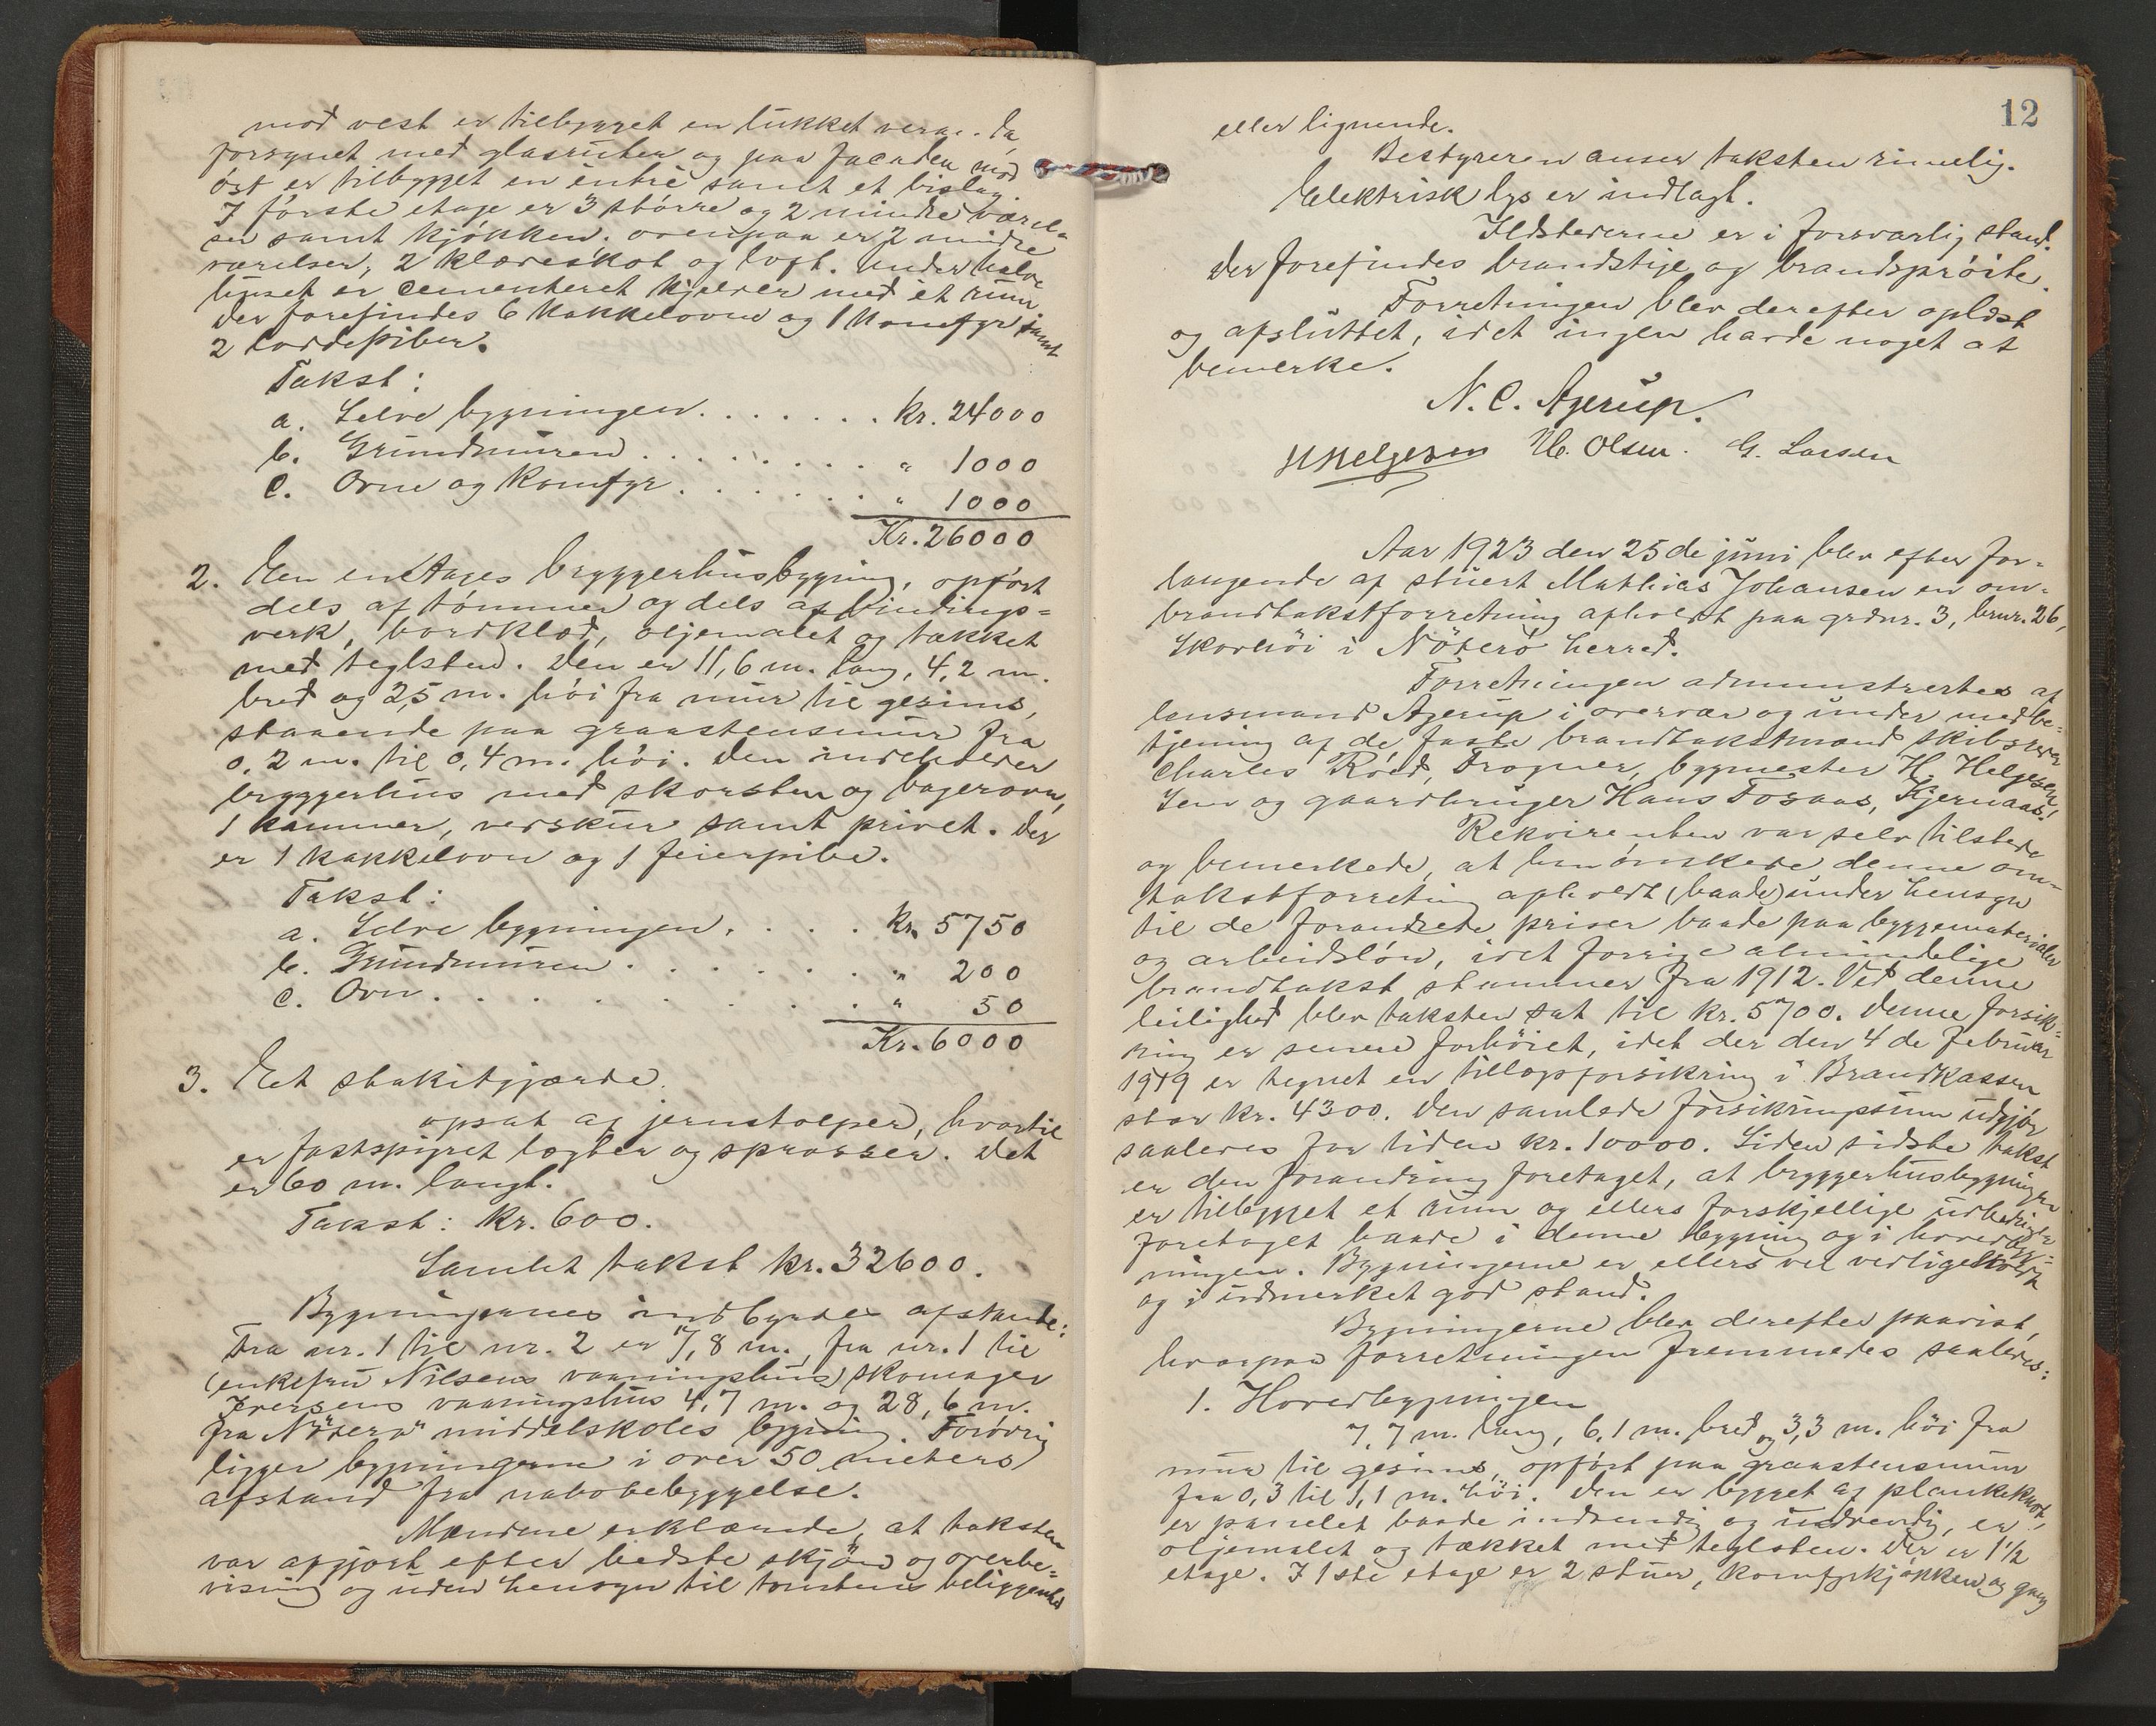 mod vest er tilbygget en lukket veran-da
forsynet med glasruter og paa facaden mod
øst er tilbygget en entré samt et bislag
I første etage er 3 større og 2 mindre værel-
ser samt kjøkken. ovenpaa er 2 mindre
værelser, 2 klæveskot og loft. under halve
huset er cementeret kjelder med et rum
Der forefindes 6 kakkelovne og 1 komfyr samt
2 tordepiber.
Takst:
a. Selve bygningen. . . . . . . kr. 24000
b. Grundmuren . . . . . . . . . " 1000
c. Ovne og komfyr. . . . . . . " 1000
Kr. 26000
2. Een en etages bryggerhusbygning, opført
dels af tømmer og dels af bindings-
verk, bordklæd, oljemalet og tækket
med teglsten. Den er 11,6 m. lang, 4,2 m.
bred og 2,5 m. høi fra mur til gesims,
staaende paa graastensmur fra
0,2 m. til 0,4 m. høi. Den indeholder
bryggerhus med skorsten og bagerovn,
1 kammer, vedskur samt privet. Der
er 1 kakkelovn og 1 feierpibe.
Takst:
a. Selve bygningen. . . . . kr. 5750
b. Grundmuren . . . . . . . . " 200
c. Ovn. . . . . . . . . . " 50
Kr. 6000
3. Eet stakitgjærde.
opsat af jernstolper, hvortil
er fastspigret lægter og sprosser. Det
er 60 m. langt.
Takst: kr. 600.
Samlet takst kr. 32600.
Bygningernes indbyrdes afstande:
Fra nr. 1 til nr. 2 er 7,8 m., fra nr. 1 til
(enkefru Nilsens vaaningshus) skomager
Iversens vaaningshus 4,7 m. og 28,6 m.
fra Nøterø middelskoles bygning. Forøvrig
ligger bygningerne i over 50 meters
afstand fra nabobebyggelse.
Mændene erklærede, at taksten
var afgjort efter bedste skjøn og overbe-
visning og uden hensyn til tomtens beliggenhed
12
eller lignende.
Bestyreren anser taksten rimelig.
Elektrisk lys er indlagt.
Ildstederne er i forsvarlig stand.
Der forefindes brandstige og brandsprøite.
Forretningen blev derefter oplæst
og afsluttet, idet ingen havde noget at
bemerke.
N. C. Agerup.
H Helgesen H. Olsen. G. Larsen
Aar 1923 den 25de juni blev efter for-
langende af stuert Mathias Johansen en om-
brandtakstforretning afholdt paa grdnr. 3, brnr. 26,
Skovhøi i Nøterø herred.
Forretningen administrertes af
lensmand Agerup i overvær og under medbe-
tjening af de faste brandtakstmænd skibsreder
Charles Røed, Trogner, bygmester H. Helgesen,
Sem og gaardbruger Hans Fosaas, Kjernaas.
Rekvirenten var selv tilstede
og bemerkede, at han ønskede denne om-
takstforretning afholdt (baade) under hensyn
til de forandrede priser baade paa byggematerialer
og arbeidsløn, idet forrige almindelige
brandtakst stammer fra 1912. Ved denne
leilighed blev taksten sat til kr. 5700. Denne forsik-
ring er senere forhøiet, idet der den 4de februar
1919 er tegnet en tillægsforsikring i Brandkassen
stor kr. 4300. Den samlede forsikringssum udgjør
saaledes for tiden kr. 10000. Siden sidste takst
er den forandring foretaget, at bryggerhusbygningen
er tilbygget et rum og ellers forskjellige udbedringer
foretaget baade i denne bygning og i hovedbyg-
ningen. Bygningerne er ellers vel vedligeholdt
og i udmerket god stand.
Bygningerne blev derefter paavist,
hvorpaa forretningen fremmedes saaledes:
1. Hovedbygningen
7,7 m. lang, 6,1 m. bred og 3,3 m. høi fra
mur til gesims, opført paa graastensmur
fra 0,3 til 1,1 m. høi. Den er bygget af plankeknot,
er panelet baade indvendig og udvendig, er
oljemalet og tækket med teglsten. Der er 1½
etage. I 1ste etage er 2 stuer, komfyrkjøkken og gang